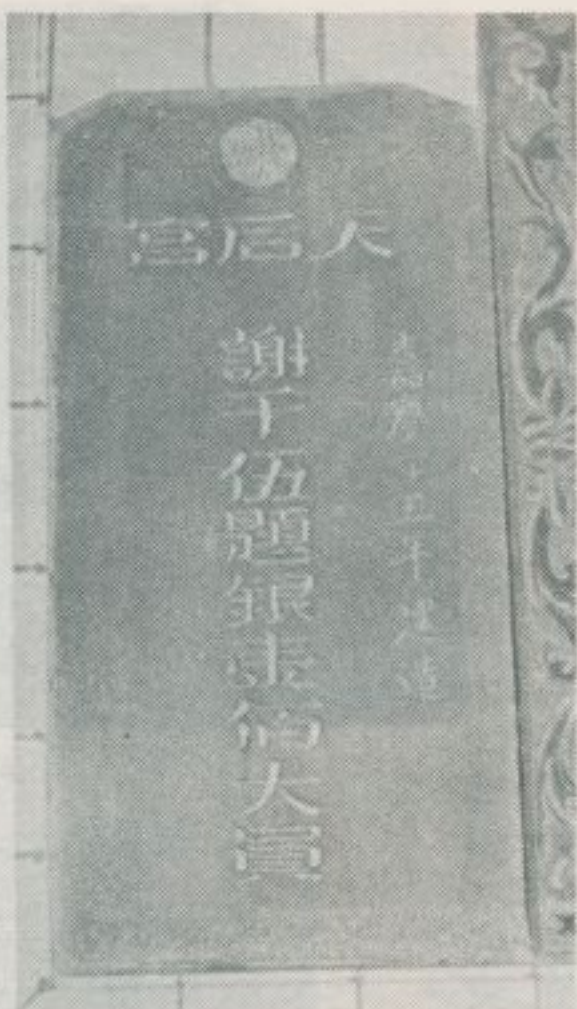 天后宮
十五年建造
謝千伍題銀壹佰大員